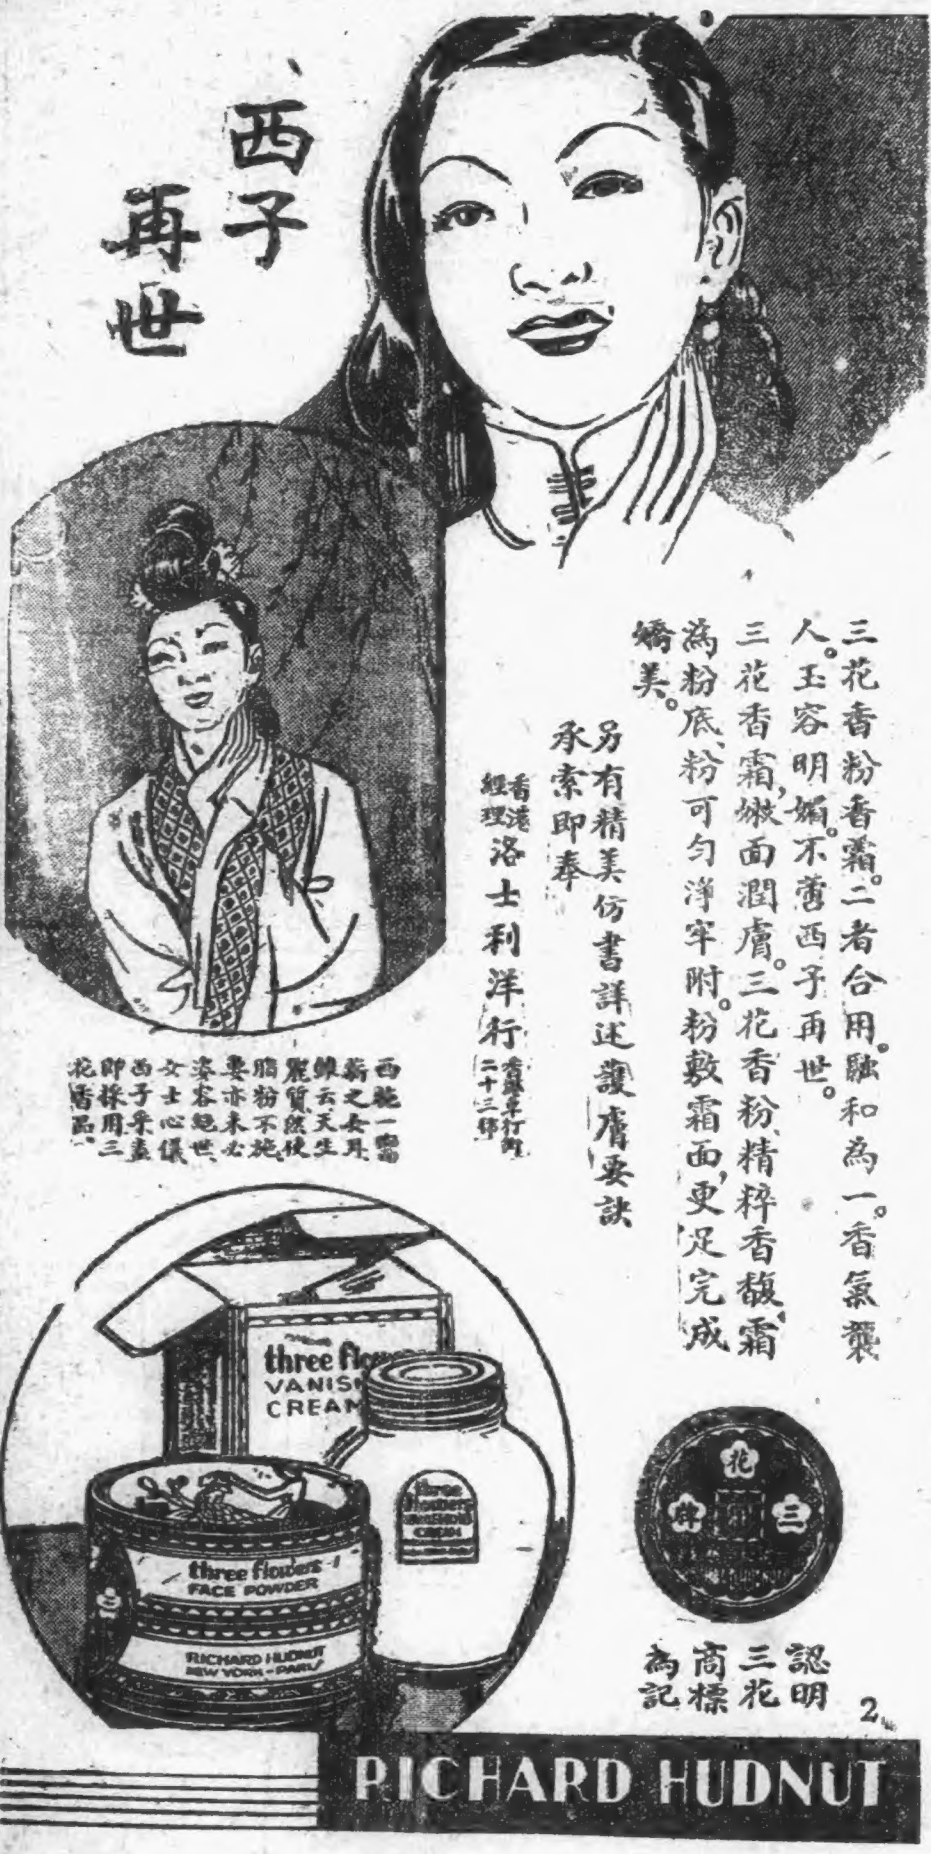 西子
再世
三花香粉香霜。二者合用。融和為一。香氣襲
人。玉容明媚。不啻西子再世。
三花香霜，嫩面潤膚。三花香粉，精粹香馥，霜
為粉底，粉可勻淨牢附。粉敷霜面，更足完成
嬌美。
另有精美仿書詳述護膚要訣
承索即奉
香港
經理
洛士利洋行
二十三號
西施一當
薪之女耳
雖云天生
麗質然使
脂粉不施
要亦未必
姿容絕世
女士心儀
西子乎盍
即採用三
花香品
three flowers
VANISH
CREAM
three
flowers
VANISHING
CREAM
three flowers
FACE POWDER
RICHARD HUDNUT
NEW YORK - PARIS
三
花
三
牌
認明
三花
商標
為記
2
RICHARD HUDNUT